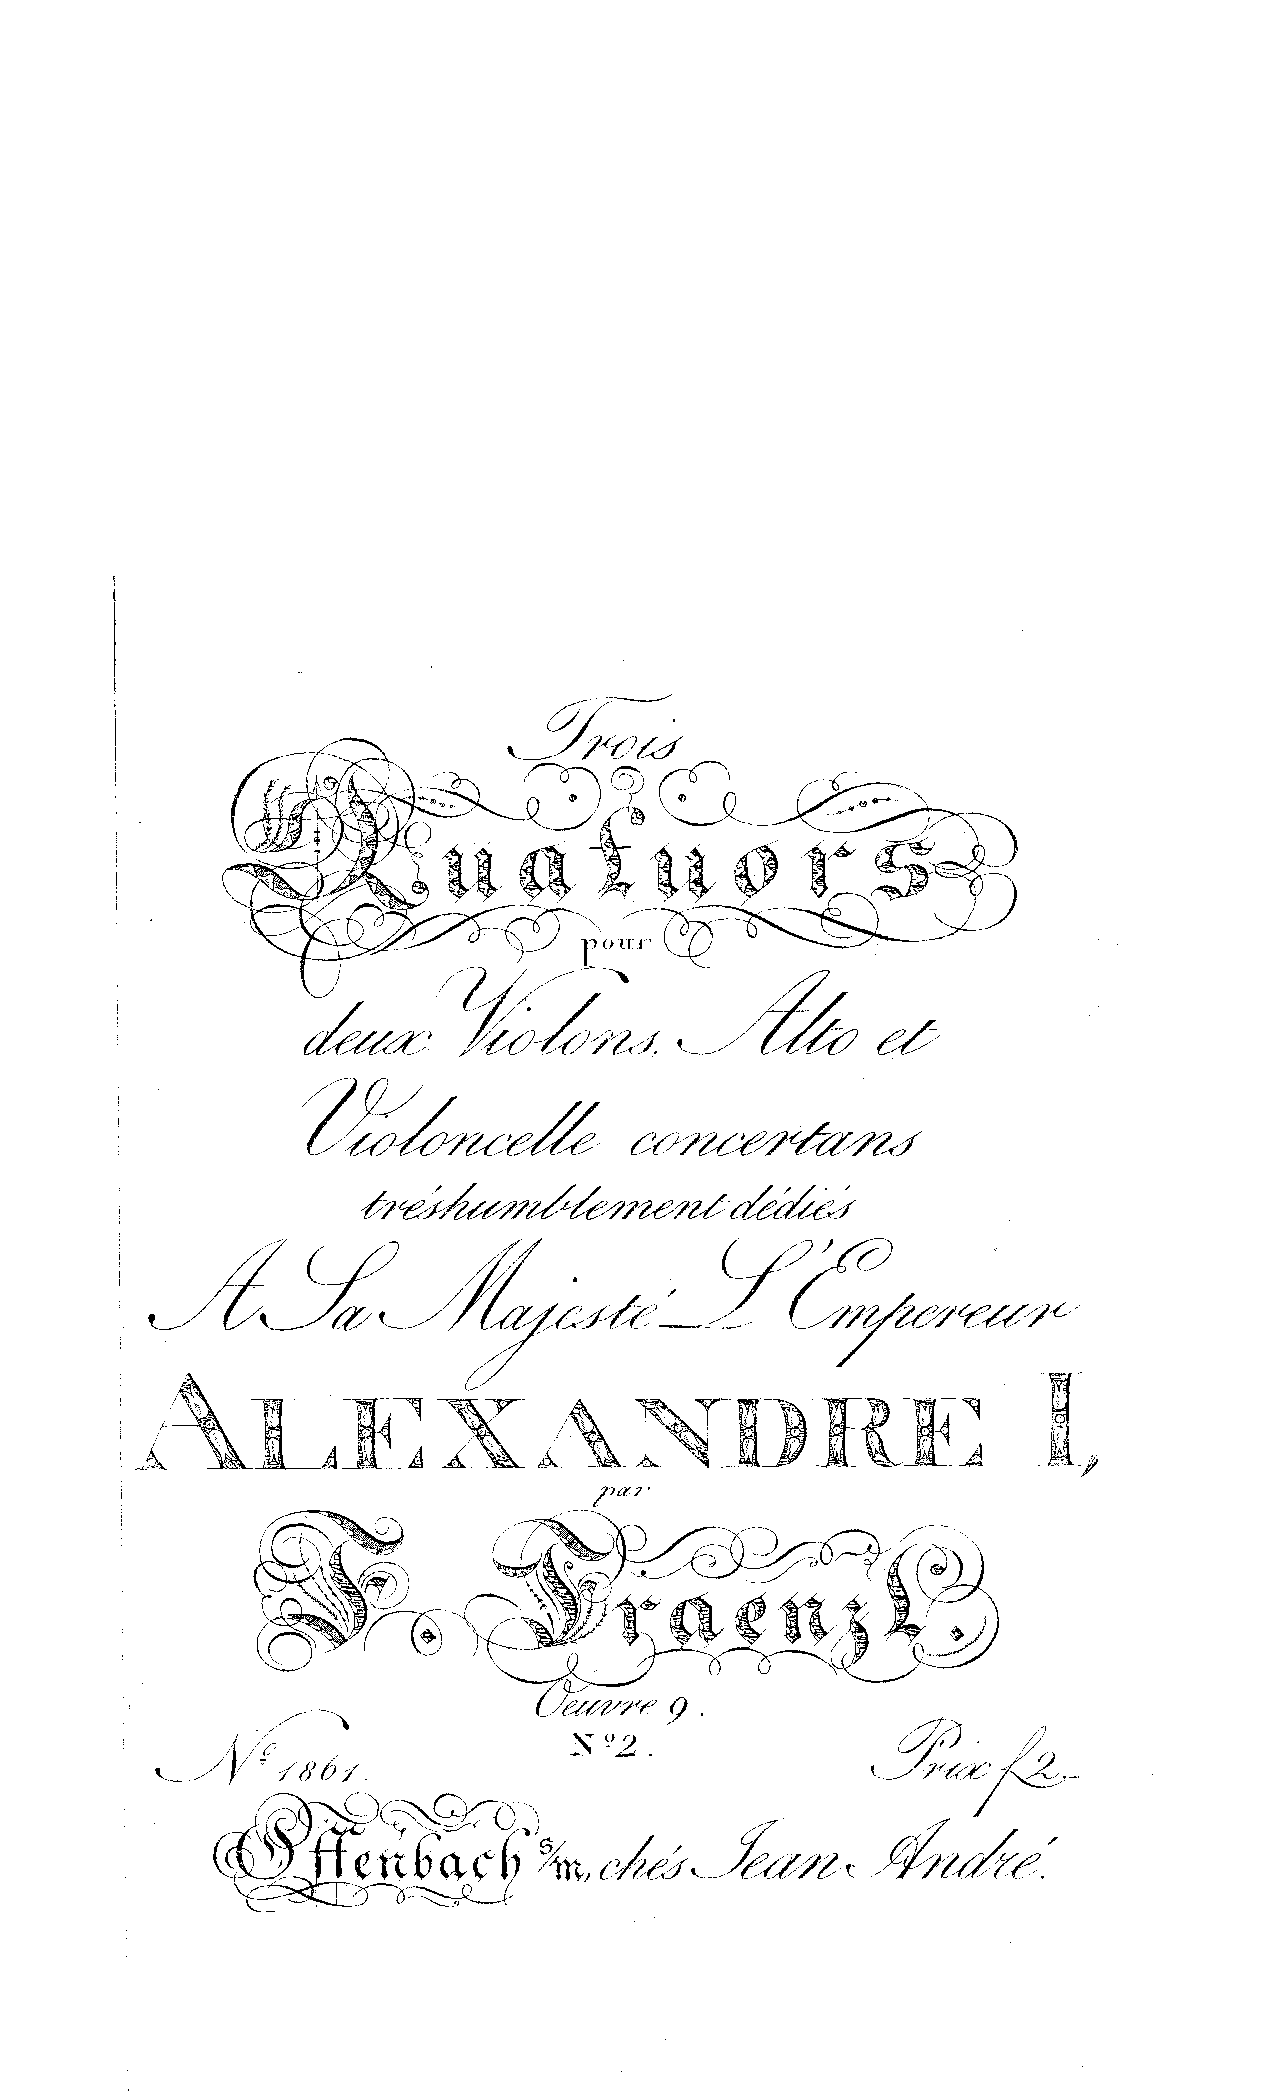 Trois
Quatuors
pour
deux Violons, Alto et
Violoncelle concertans
tréshumblement dédiés
A Sa Majesté L'Empereur
ALEXANDRE I,
par
F. Fraenzl.
Oeuvre 9.
Nº 2.
Nº 1861. Prix f 2.–
Offenbach s/m, chés Jean André.